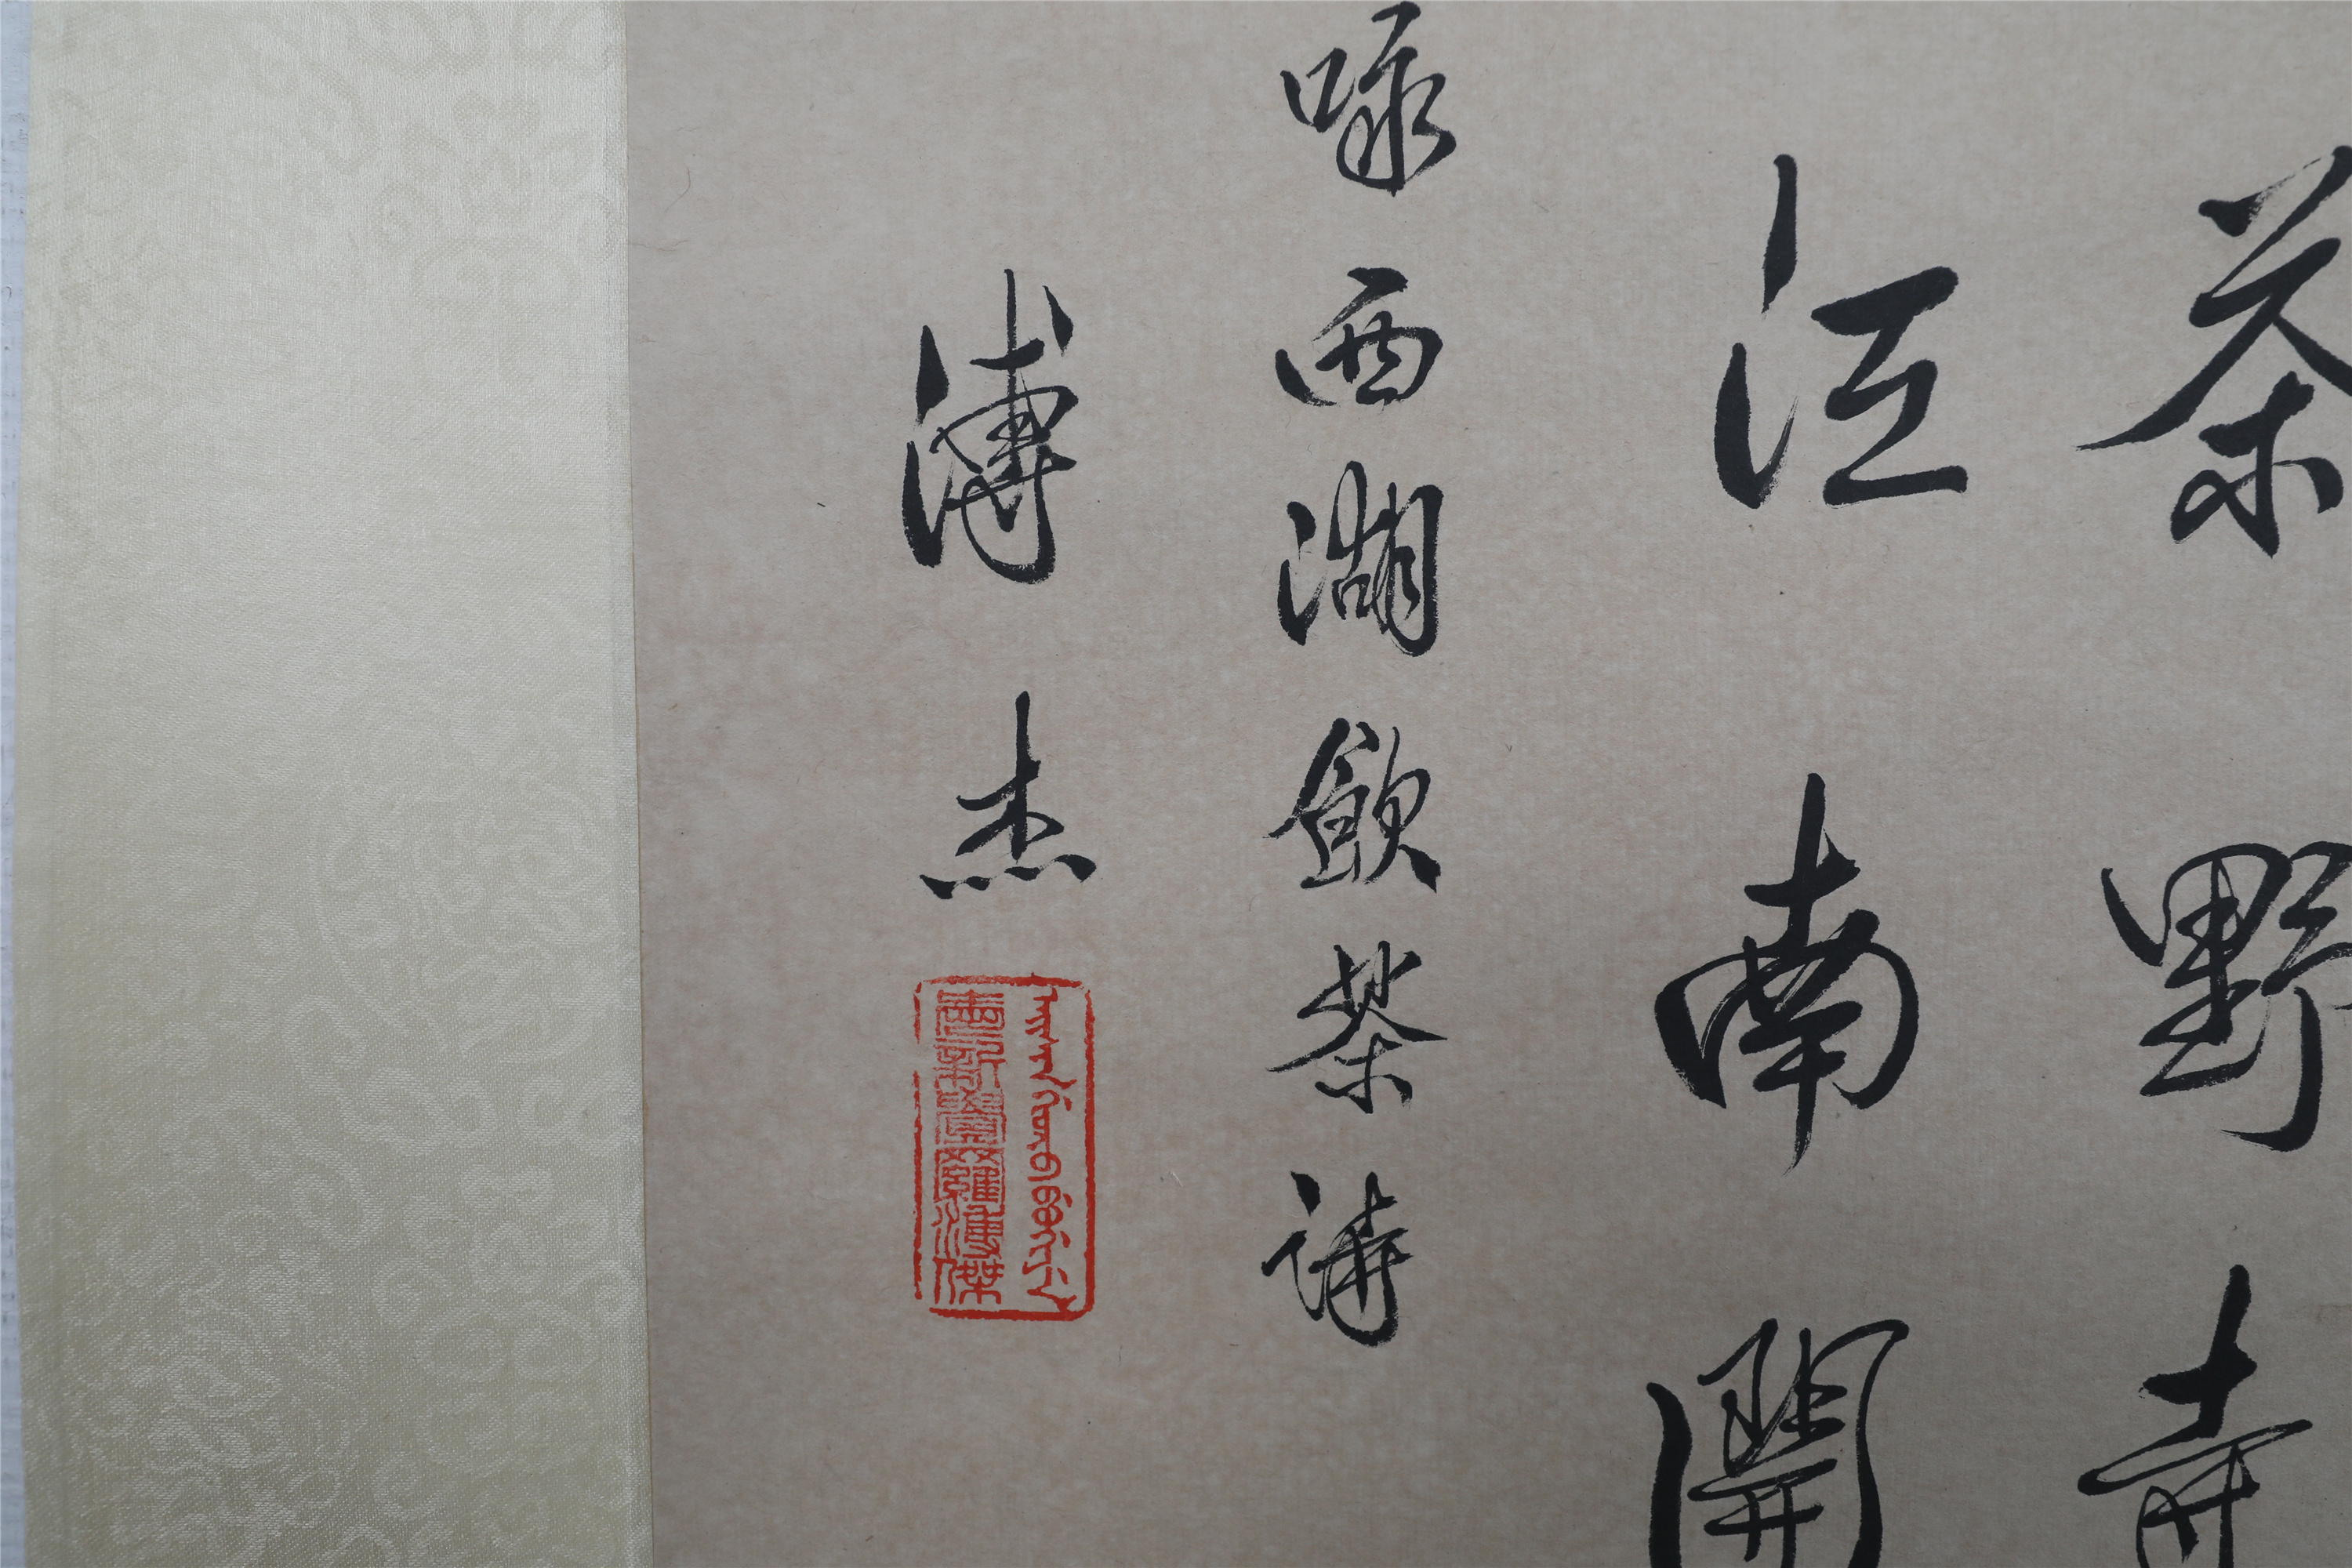 茶野寺
江南開
咏西湖飲茶诗
溥杰
愛新覺羅溥傑